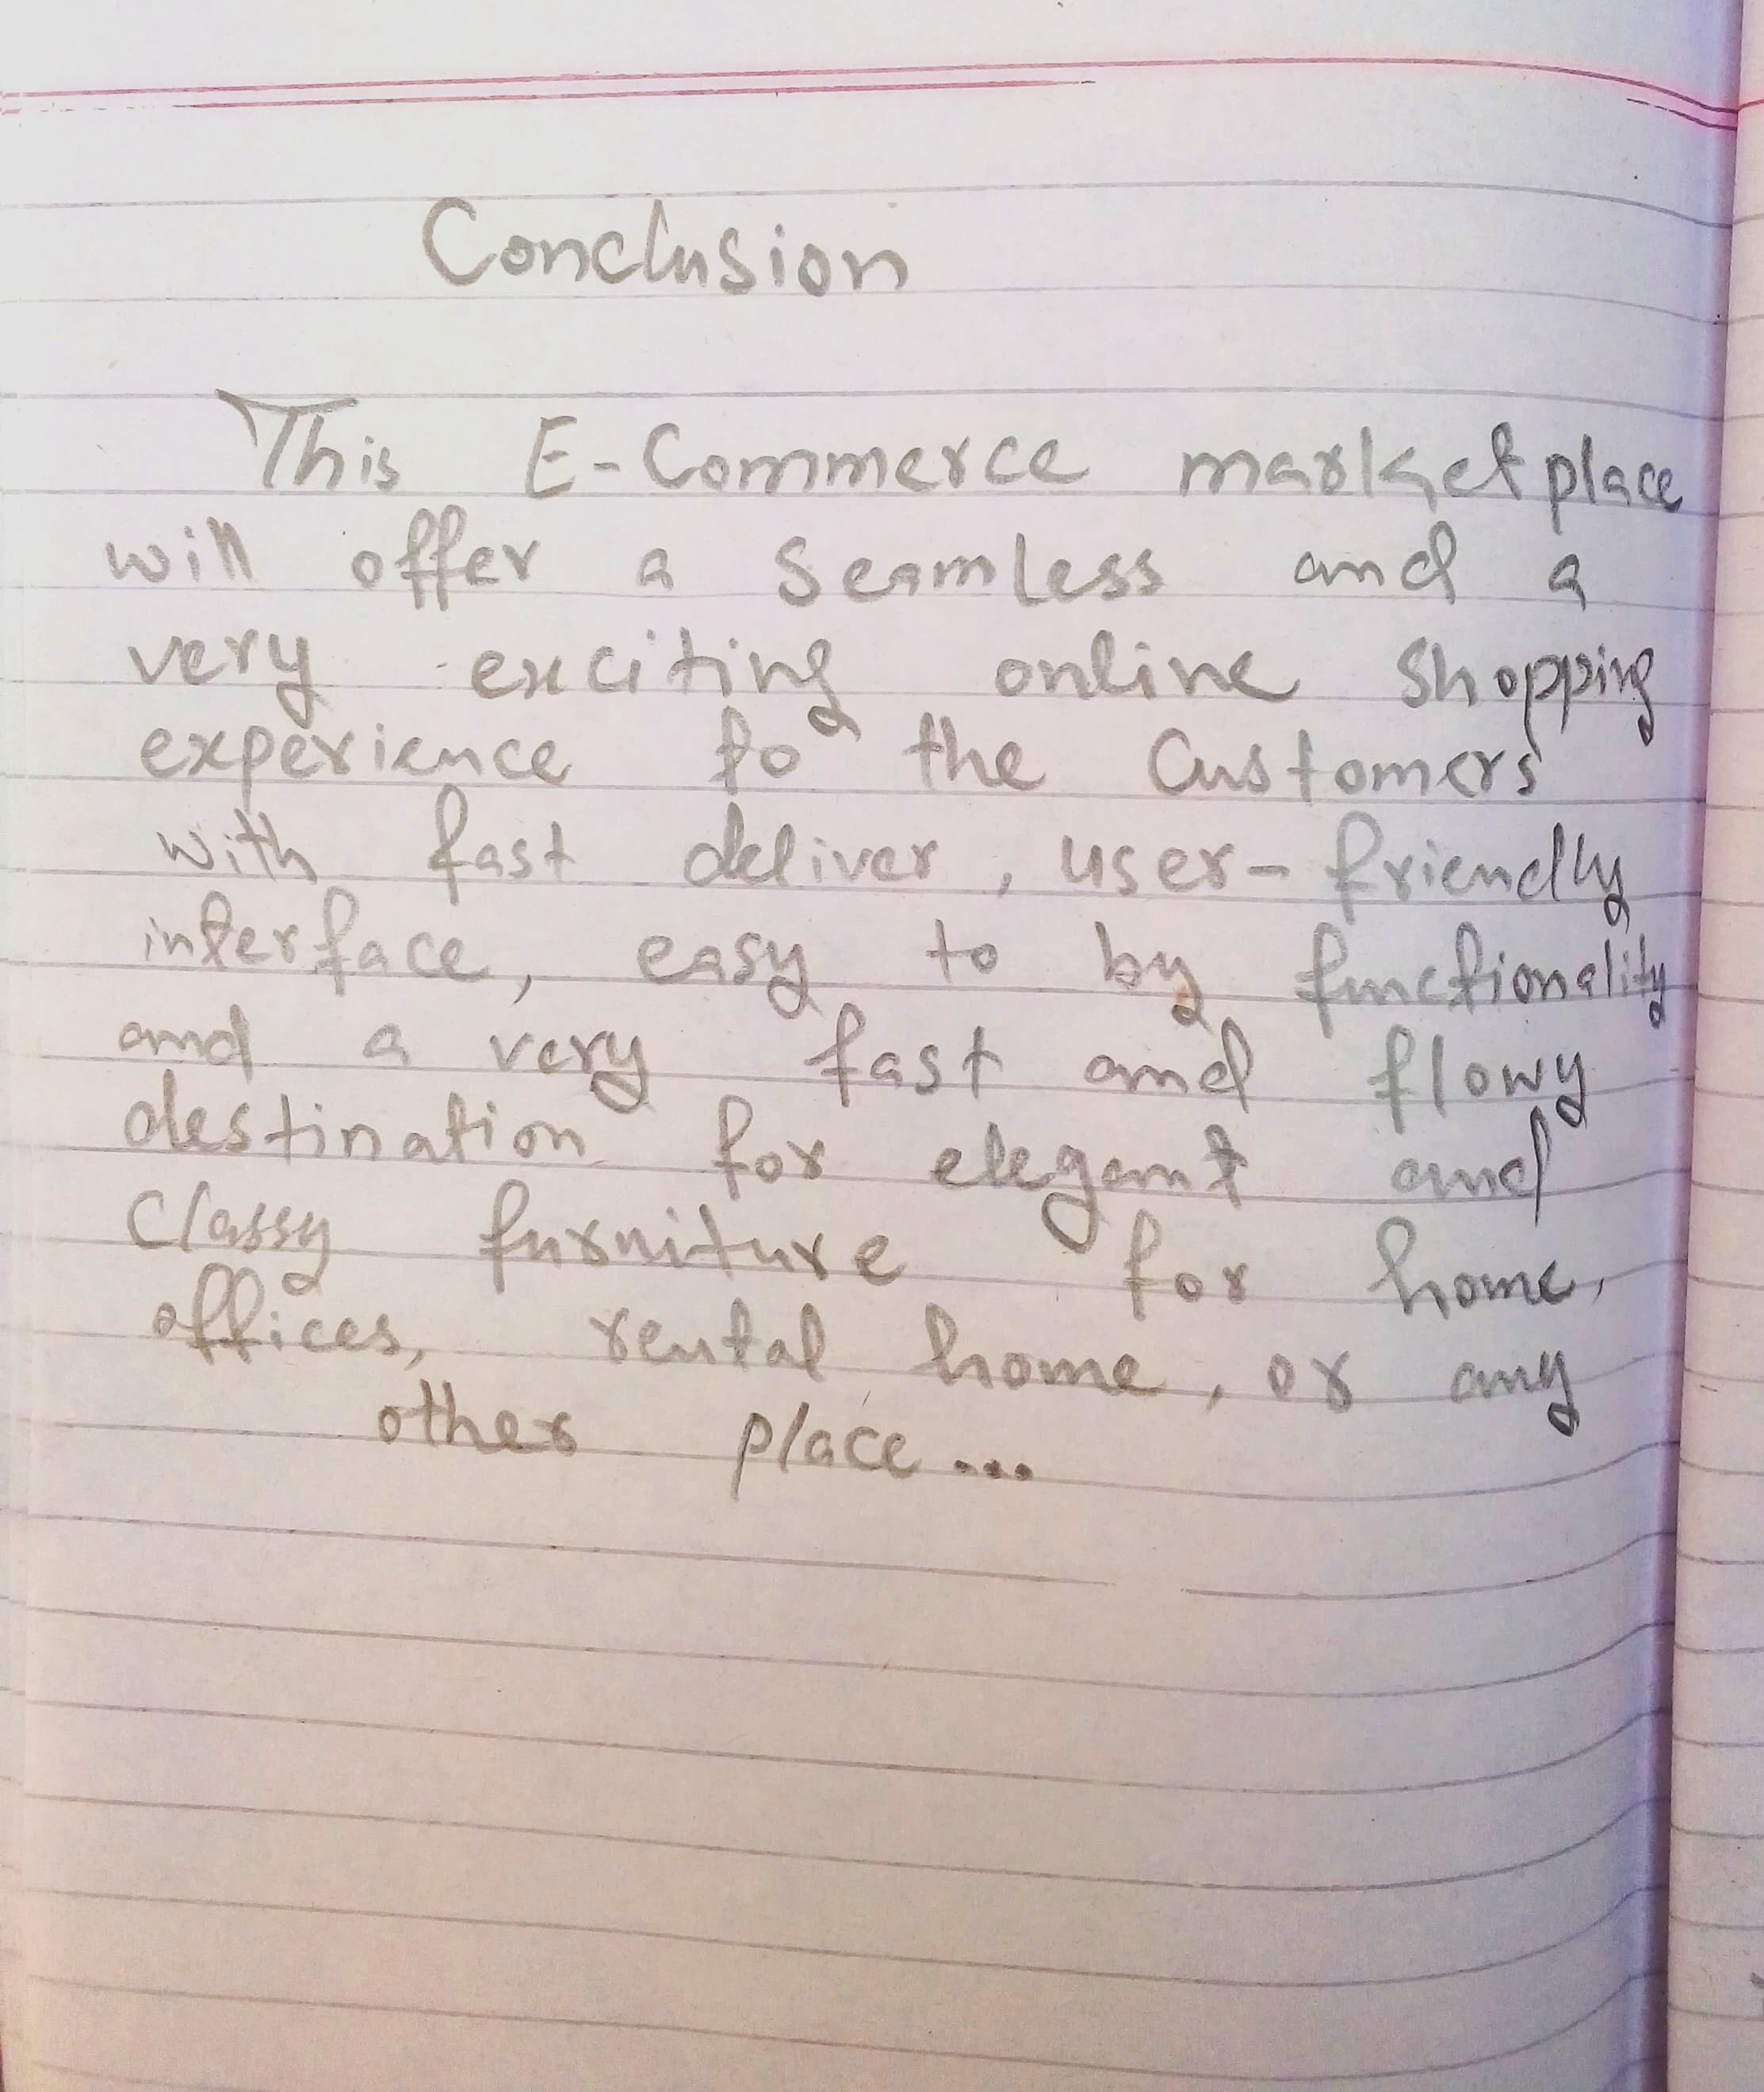 Conclusion
This E-Commerce marketplace
will offer a seamless and a
very exciting online shopping
experience to the Customers
with fast deliver, user-friendly
interface, easy to by functionality
and a very fast and flowy
destination for elegant and
classy furniture for home,
offices, rental home, or any
other place...